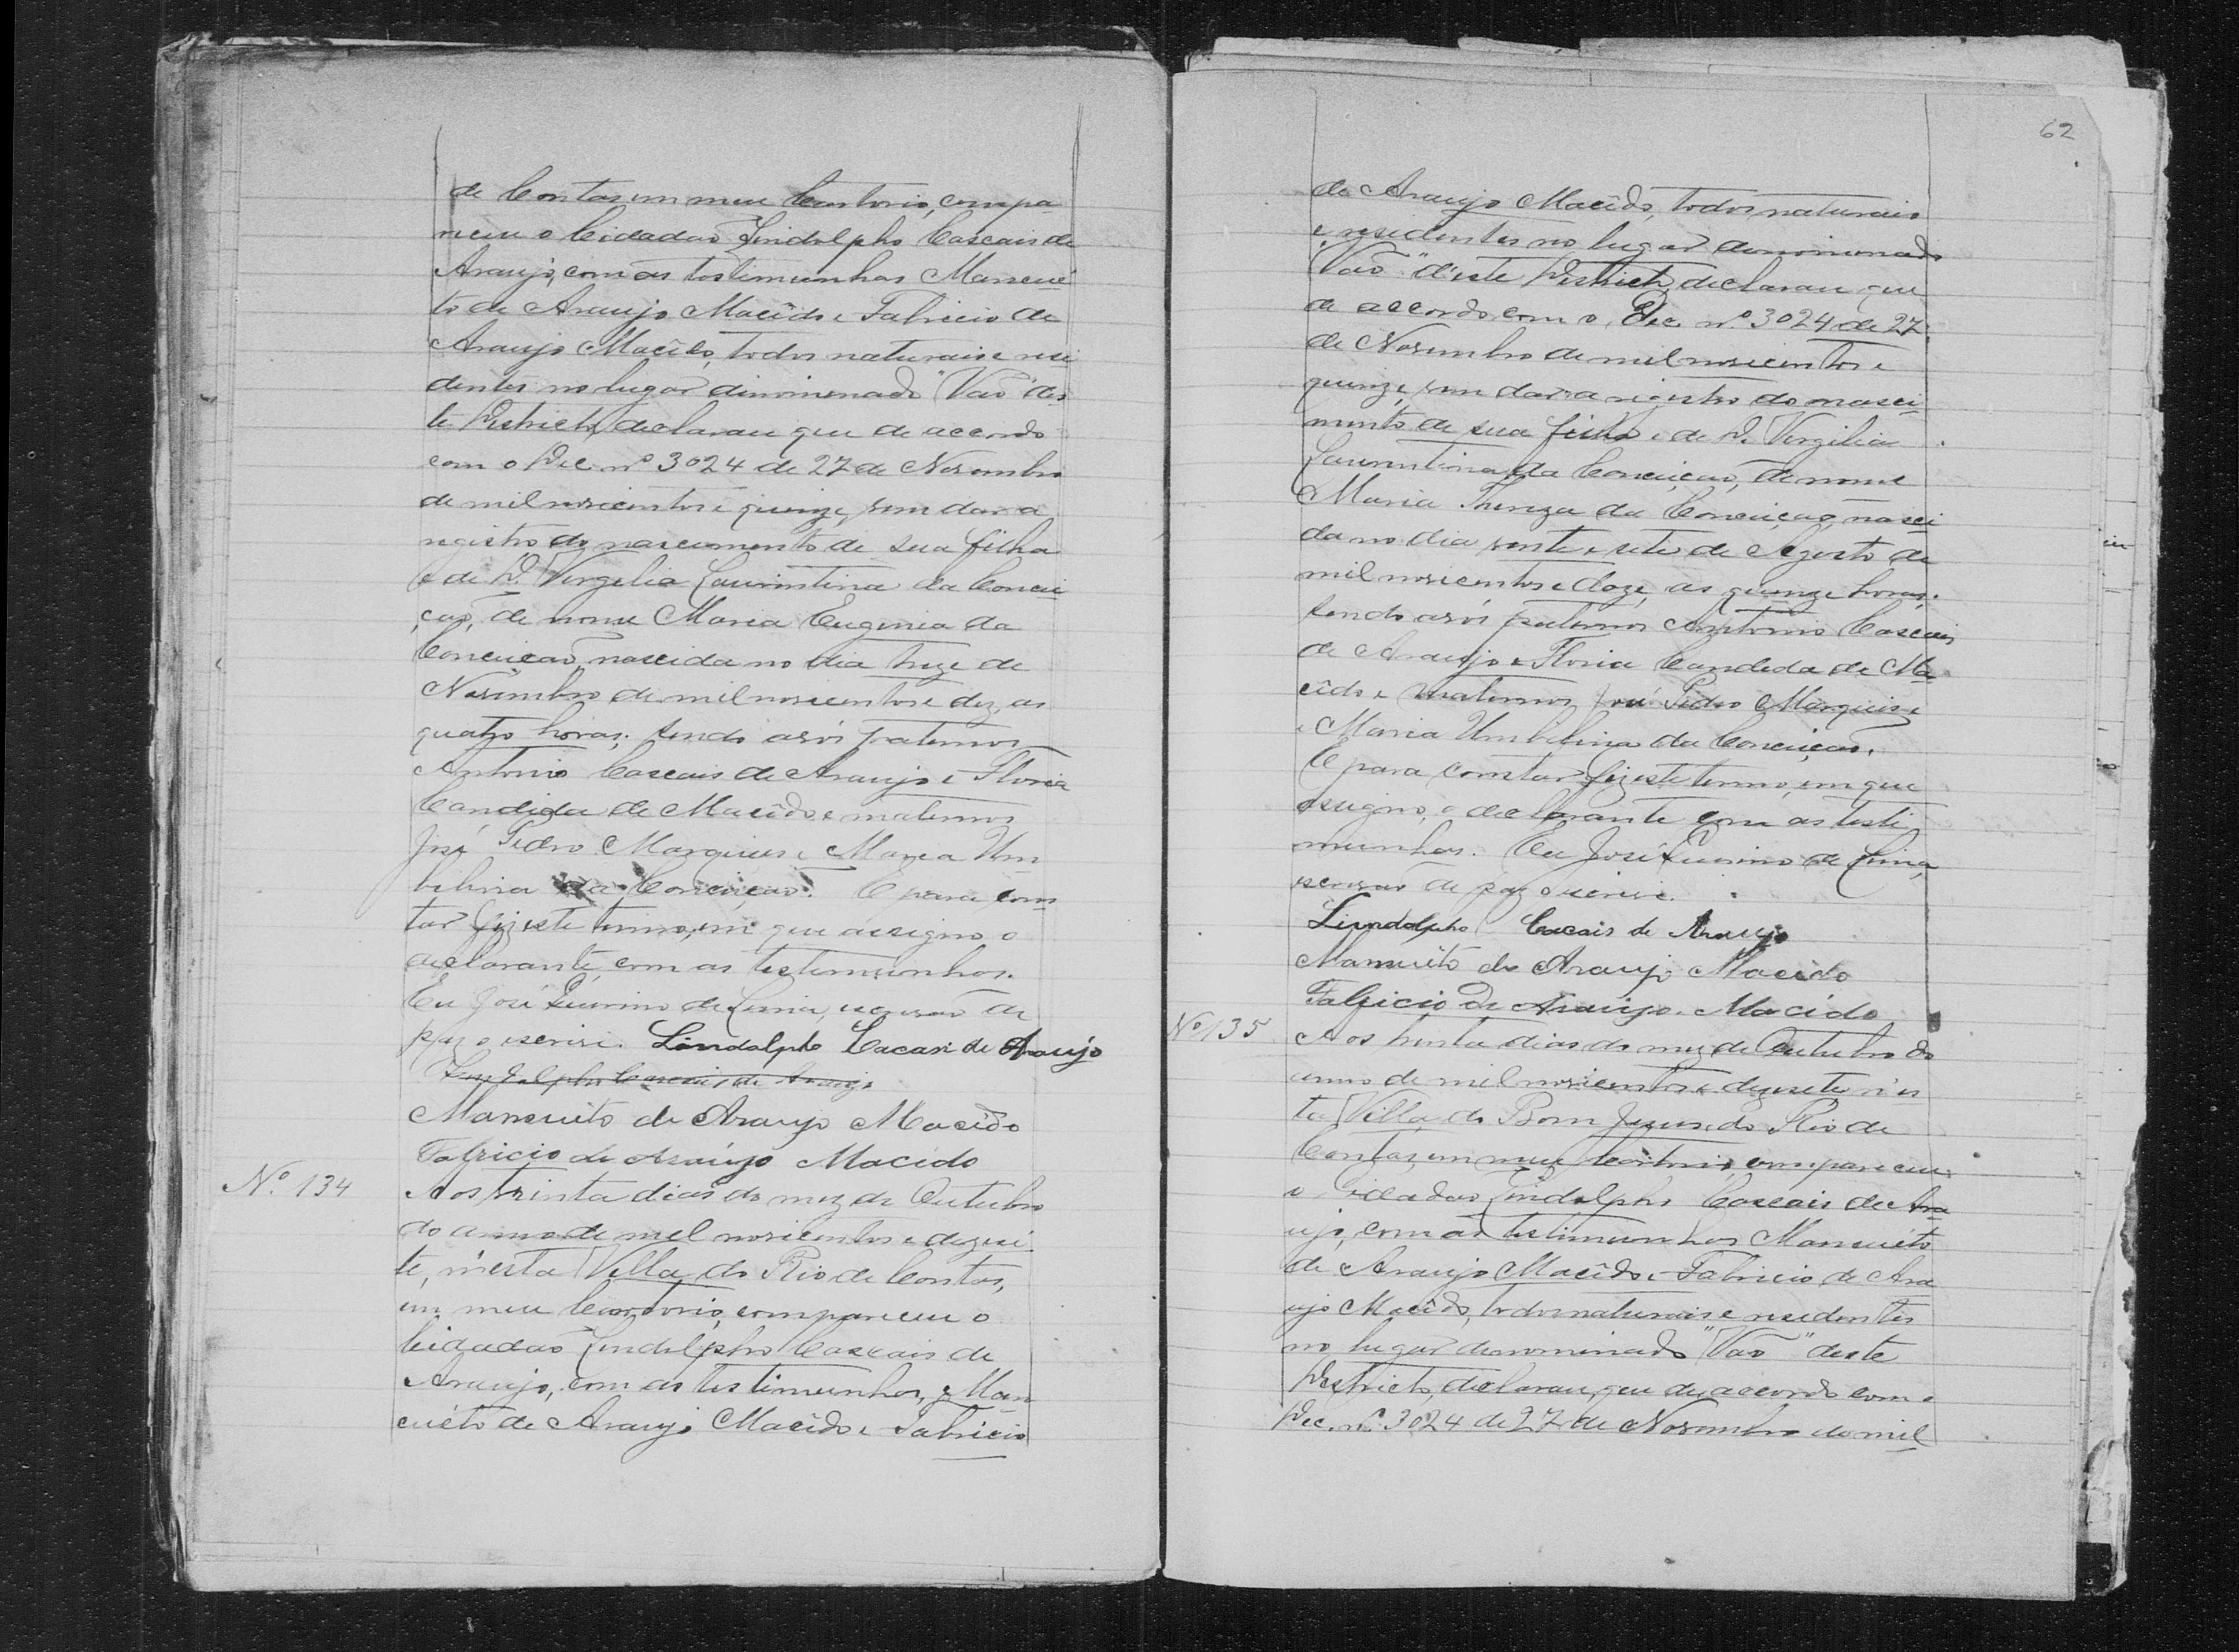 de Contas em meu Cartorio, compa-
receu o Cidadaõ Lindolpho Cascais de
Araujo, com as testimunhas Mansuê-
to de Araujo Macêdo e Fabricio de
Araujo Macêdo, todos naturais e resi-
dentes no lugar dinominado "Vaõ" des-
te Districto, declarou que de accordo
com o Dec. nº 3024 de 27 de Novembro
de mil novicentos e quinze, vem dar a
registro do nascimento de sua filha
e de D. Virgilia Laurintina da Concei-
çaõ, de nome Maria Eugenia da
Conceiçaõ, nascida no dia treze de
Novembro de mil novicentos e dez, as
quatro horas; sendo avós paternos
Antonio Cascais de Araujo e Floria
Candida de Macêdo, e maternos
José Pedro Marques e Maria Um-
bilina da Conceiçaõ. E para cons-
tar fiz este termo, em que assigno o
declarante com as testimunhas.
Eu José Quirino de Lima, escrivaõ de
paz o escrivi. Lindolpho Cacais de Araujo
Lindolpho Cascais de Araujo
Mansuêto de Araujo Macêdo
Fabricio de Araújo Macêdo
Nº 134
Aos trinta dias do mez de Outubro
do anno de mil novicentos e dezese-
te, n'esta Villa do Rio de Contas,
em meu Cartorio, compareceu o
Cidadaõ Lindolpho Cascais de
Araujo, com as testimunhas, Man-
cuêto de Araujo Macêdo e Fabricio
62
de Araujo Macêdo, todos naturais
e residentes no lugar denominado
"Vaõ" d'este Districto, declarou que
de accordo com o Dec. nº 3024 de 27
de Novembro de mil novicentos e
quinze, vem dar a registro do nasci-
mento de sua filha e de D. Virgilia
Laurentina da Conceiçaõ, de nome
Maria Thereza da Conceiçaõ, nasci-
da no dia vinte e sete de Agosto de
mil novicentos e doze, as quinze horas;
sendo avós paternos Antonio Cascais
de Araujo e Floria Candida de Ma-
cêdo e maternos José Pedro Marques e
e Maria Umbilina da Conceiçaõ.
E para constar fiz este termo, em que
assigno, o declarante com as testi-
munhas. Eu José Quirino de Lima,
escrivaõ de paz o escrivi.
Lindolpho Cacais de Araujo
Mansuêto de Araujo Macêdo
Fabricio de Araújo Macêdo
Nº 135
Aos trinta dias do mez de Outubro do
anno de mil novicentos e dezesete n'es-
ta Villa do Bom Jesus do Rio de
Contas, em meu Cartorio, compareceu
o Cidadaõ Lindolpho Cascais de Ara-
ujo, com as testimunhas Mansuêto
de Araujo Macêdo e Fabricio de Ara-
ujo Macêdo, todos naturais e residentes
no lugar denominado "Vaõ" deste
Districto, declarou, que de accordo com o
Dec. nº 3024 de 27 de Novembro de mil